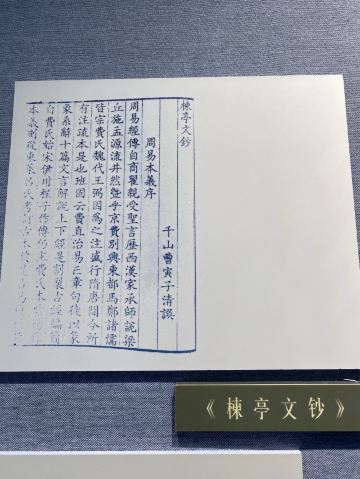 楝亭文鈔
千山曹寅子清譔
周易本義序
周易經傳自商瞿親受聖言歷西漢家承師說梁
丘施孟源流井然暨乎京費別興東都馬鄭諸儒
皆宗費氏魏代王弼因為之注盛行隋唐間今所
有注疏本是也班固云費直治易亡章句徒以彖
象系辭十篇文言解說上下經是割裂古經編簡
自費氏始宋伊川程子作傳仍主費氏本
本義則從東萊呂氏考訂古本
《楝亭文钞》